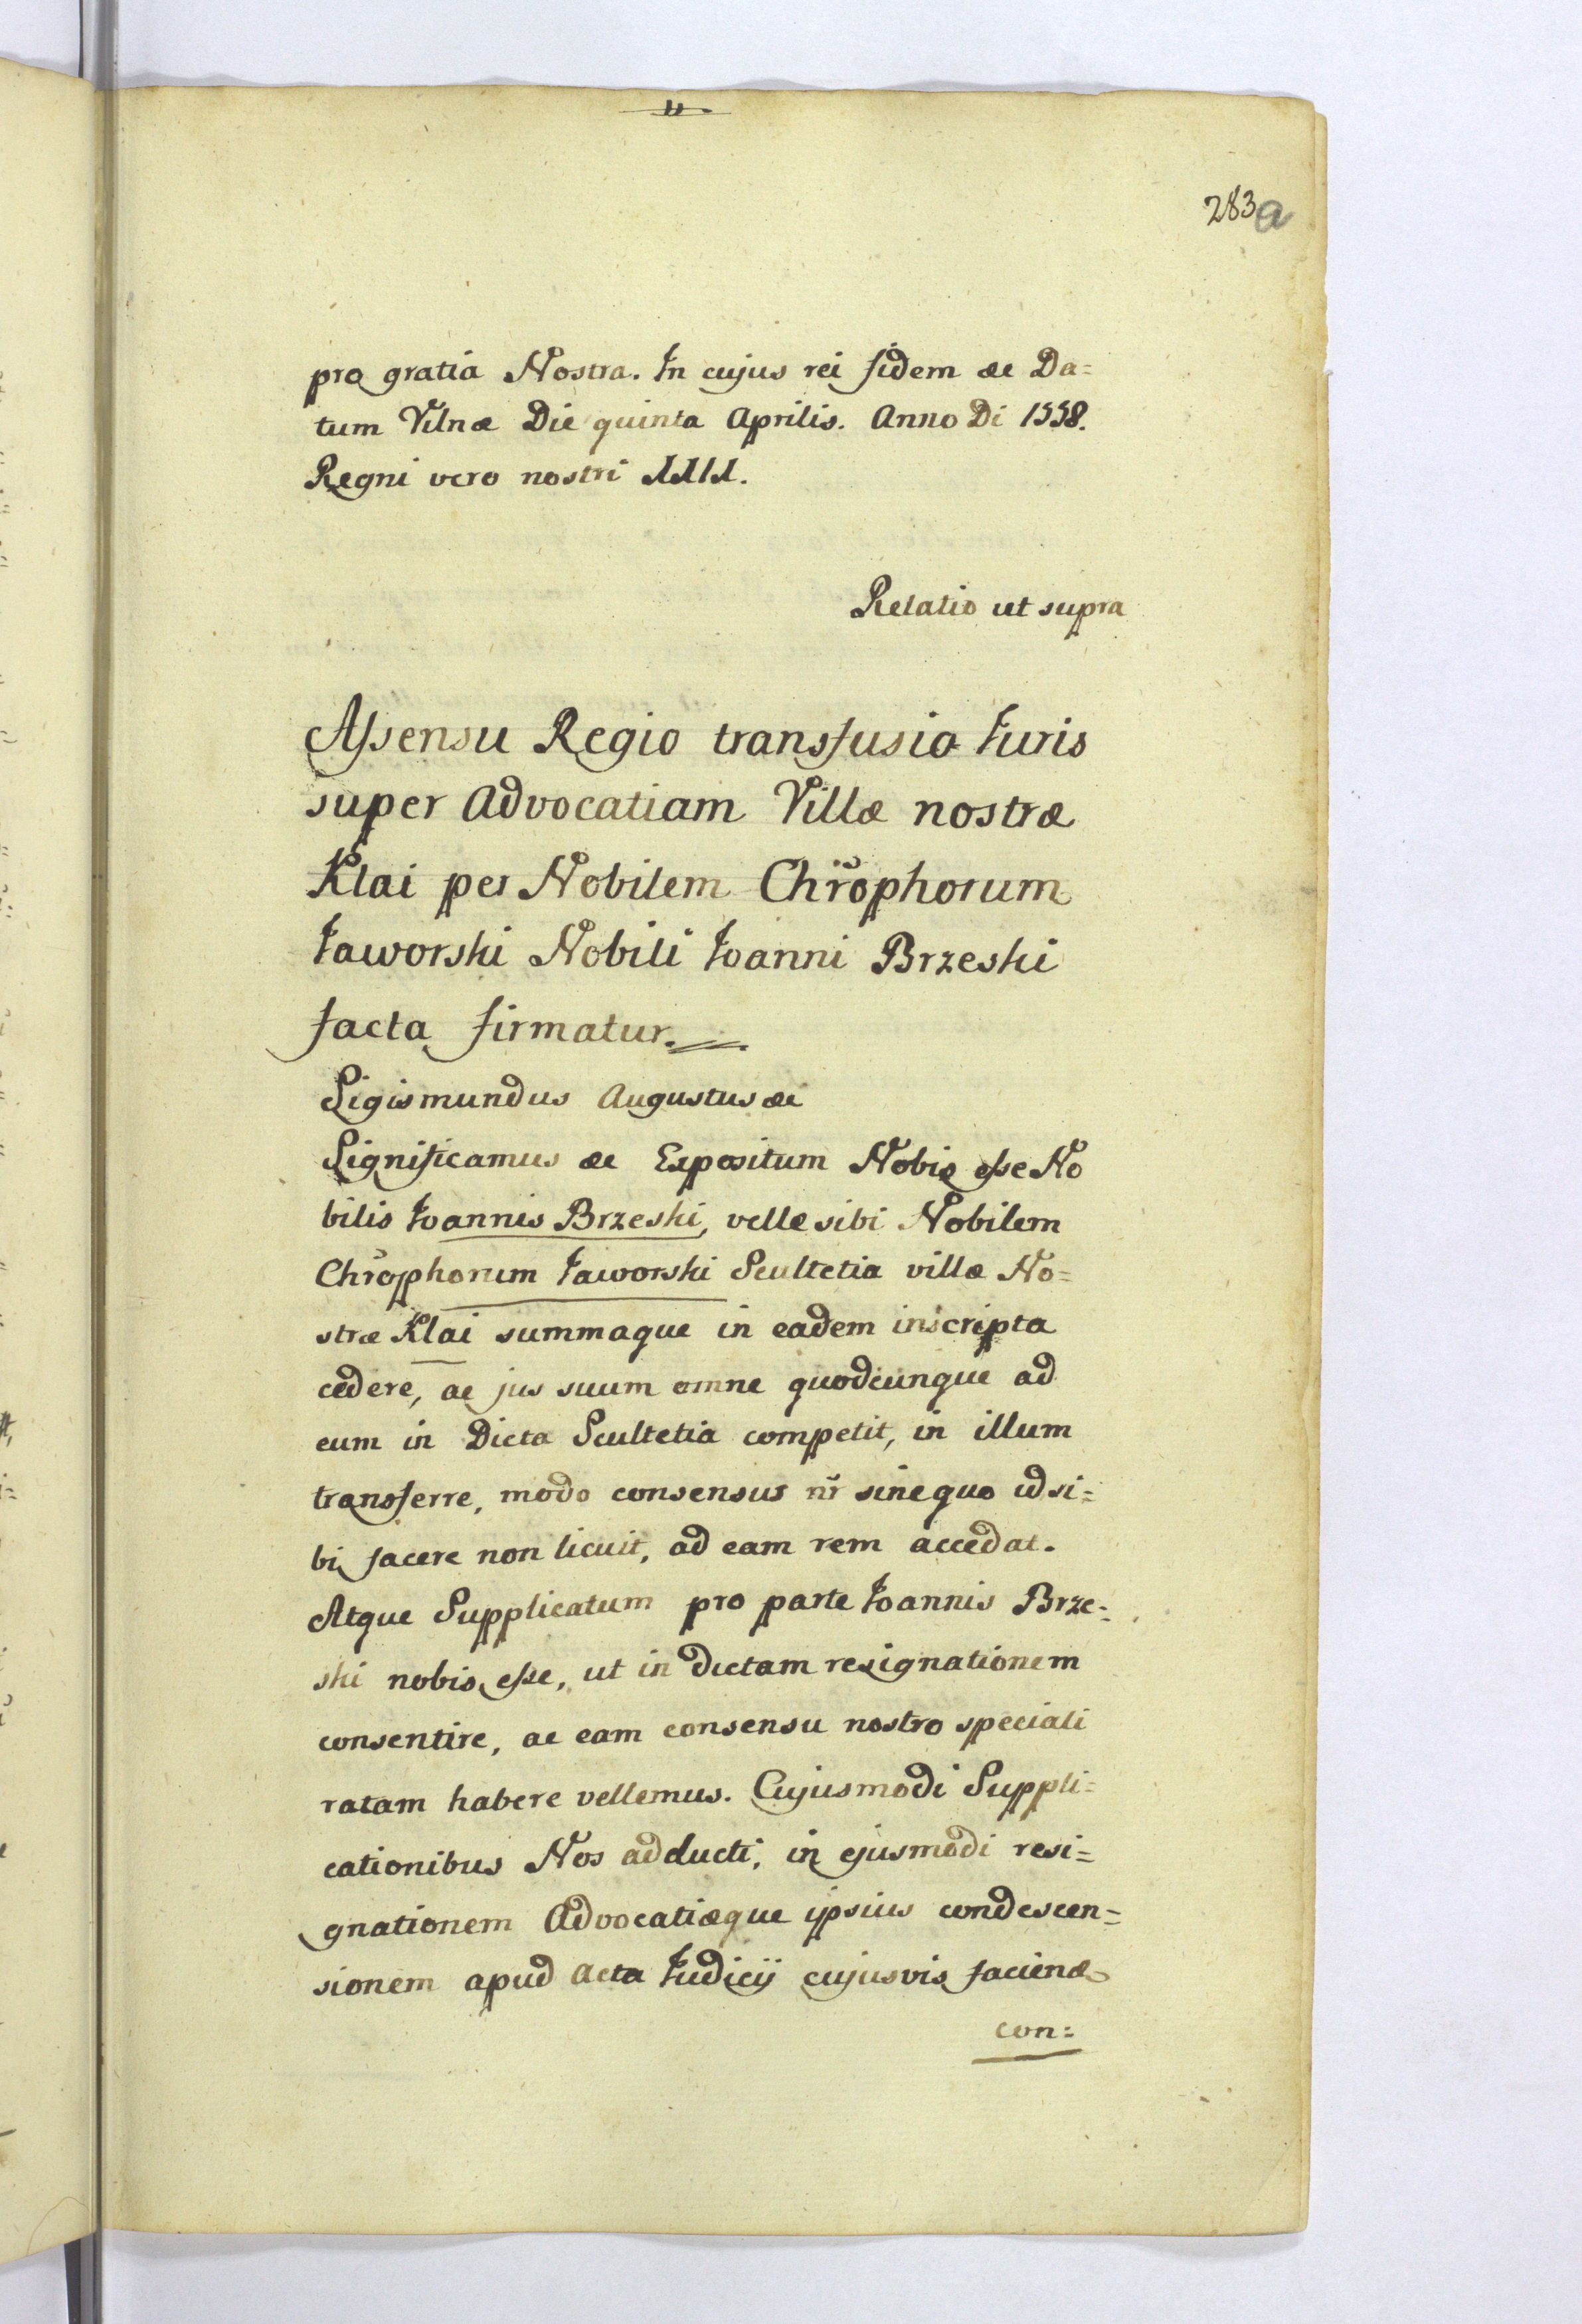 11.
283a
pro gratia Nostra. In cujus rei fidem &c Da=
tum Vilnæ Die quinta Aprilis. Anno Di 1558.
Regni vero nostri
Relatio ut supra
Assensu Regio transfusio Iuris
super Advocatiam Villæ nostræ
Klai per Nobilem Chrõphorum
Iaworski Nobili Ioanni Brzeski
facta firmatur.
Sigismundus Augustus &c
Significamus &c Expositum Nobis esse No
bilis Ioannis Brzeski, velle sibi Nobilem
Chrõphorum Iaworski Scultetia villæ No=
stræ Klai summaque in eadem inscripta
cedere, ac jus suum omne quodcunque ad
eum in Dicta Scultetia competit, in illum
transferre, modo consensus nr̃ sine quo id si=
bi facere non licuit, ad eam rem accedat.
Atque Supplicatum pro parte Ioannis Brze=
ski nobis esse, ut in dictam resignationem
consentire, ac eam consensu nostro speciali
ratam habere vellemus. Cujusmodi Suppli=
cationibus Nos adducti, in ejusmodi resi=
gnationem Advocatiæque ipsius condescen=
sionem apud acta Iudicij cujusvis faciend
con=